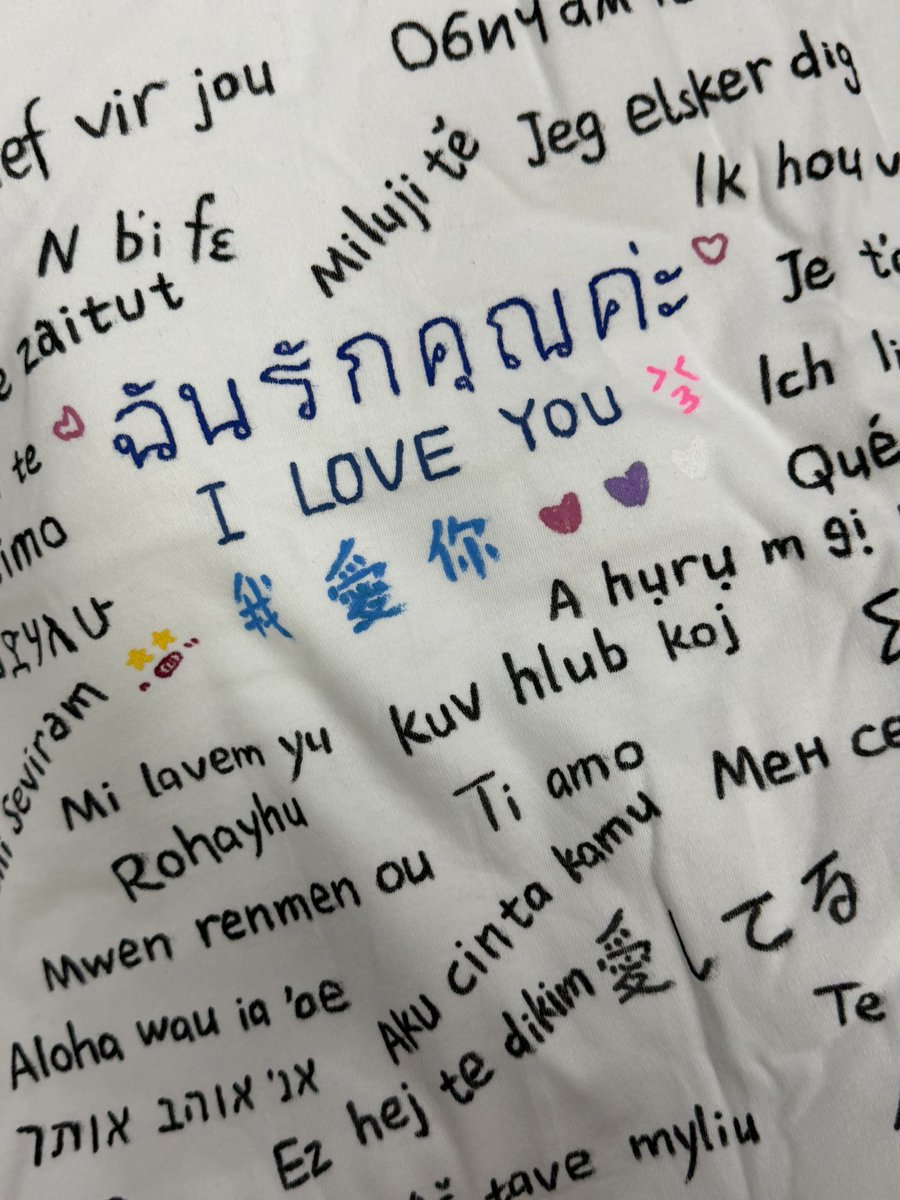 Обnyam
ef vir jou
Jeg elsker dig
Miluji tě
Ik hou v
N bi fɛ
zaitut
Je t'a
ฉันรักคุณค่ะ
Ich li
te
I LOVE YOU
Qué
imo
我愛你
A hụrụ m gị
Seviram
kuv hlub koj
Mi lavem yu
Ti amo
Мен се
Rohayhu
Mwen renmen ou
Aku cinta kamu
愛してる
Aloha wau ia 'oe
Te
אני אוהב אותך
Ez hej te dikim
tave myliu